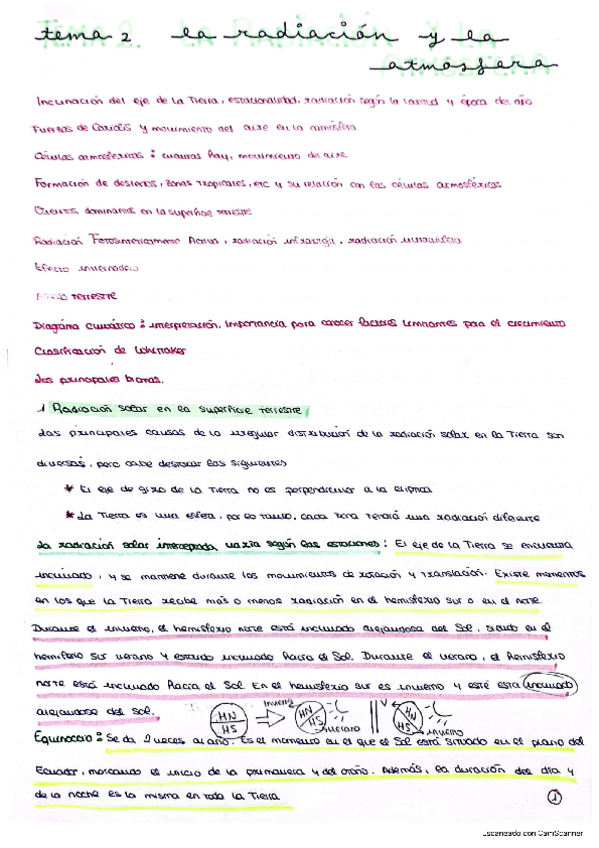 tema 2 la radiación y la
atmósfera
Inclinación del eje de la Tierra, estacionalidad, radiación según la latitud y época del año
Fuerzas de Coriolis y movimiento del aire en la atmósfera
Células atmosféricas: cuantas hay, movimiento del aire
Formación de desiertos, zonas tropicales, etc y su relación con las células atmosféricas
Vientos dominantes en la superficie terrestre
Radiación Fotosintéticamente Activa, radiación infrarroja, radiación ultravioleta
Efecto invernadero
terrestre
Diagrama climático: interpretación. Importancia para conocer factores limitantes para el crecimiento
Clasificación de Whittaker
Los principales biomas.
1 Radiación solar en la superficie terrestre
Las principales causas de la irregular distribución de la radiación solar en la Tierra son
diversas, pero cabe destacar las siguientes
* El eje de giro de la Tierra no es perpendicular a la elíptica
* La Tierra es una esfera, por lo tanto, cada zona tendrá una radiación diferente
La radiación solar interceptada varía según las estaciones: El eje de la Tierra se encuentra
inclinado, y se mantiene durante los movimientos de rotación y translación. Existe momentos
en los que la Tierra recibe más o menos radiación en el hemisferio sur o en el norte.
Durante el invierno, el hemisferio norte está inclinado alejandose del Sol, siendo en el
hemisferio sur verano y estando inclinado hacia el Sol. Durante el verano, el hemisferio
norte está inclinado hacia el Sol. En el hemisferio sur es invierno y este está inclinado
alejandose del Sol.
HN HS invierno HN HS verano V HN HS invierno
Equinoccio: Se da 2 veces al año. Es el momento en el que el Sol está situado en el plano del
Ecuador, marcando el inicio de la primavera y del otoño. Además, la duración del día y
de la noche es la misma en toda la Tierra
1
Escaneado con CamScanner